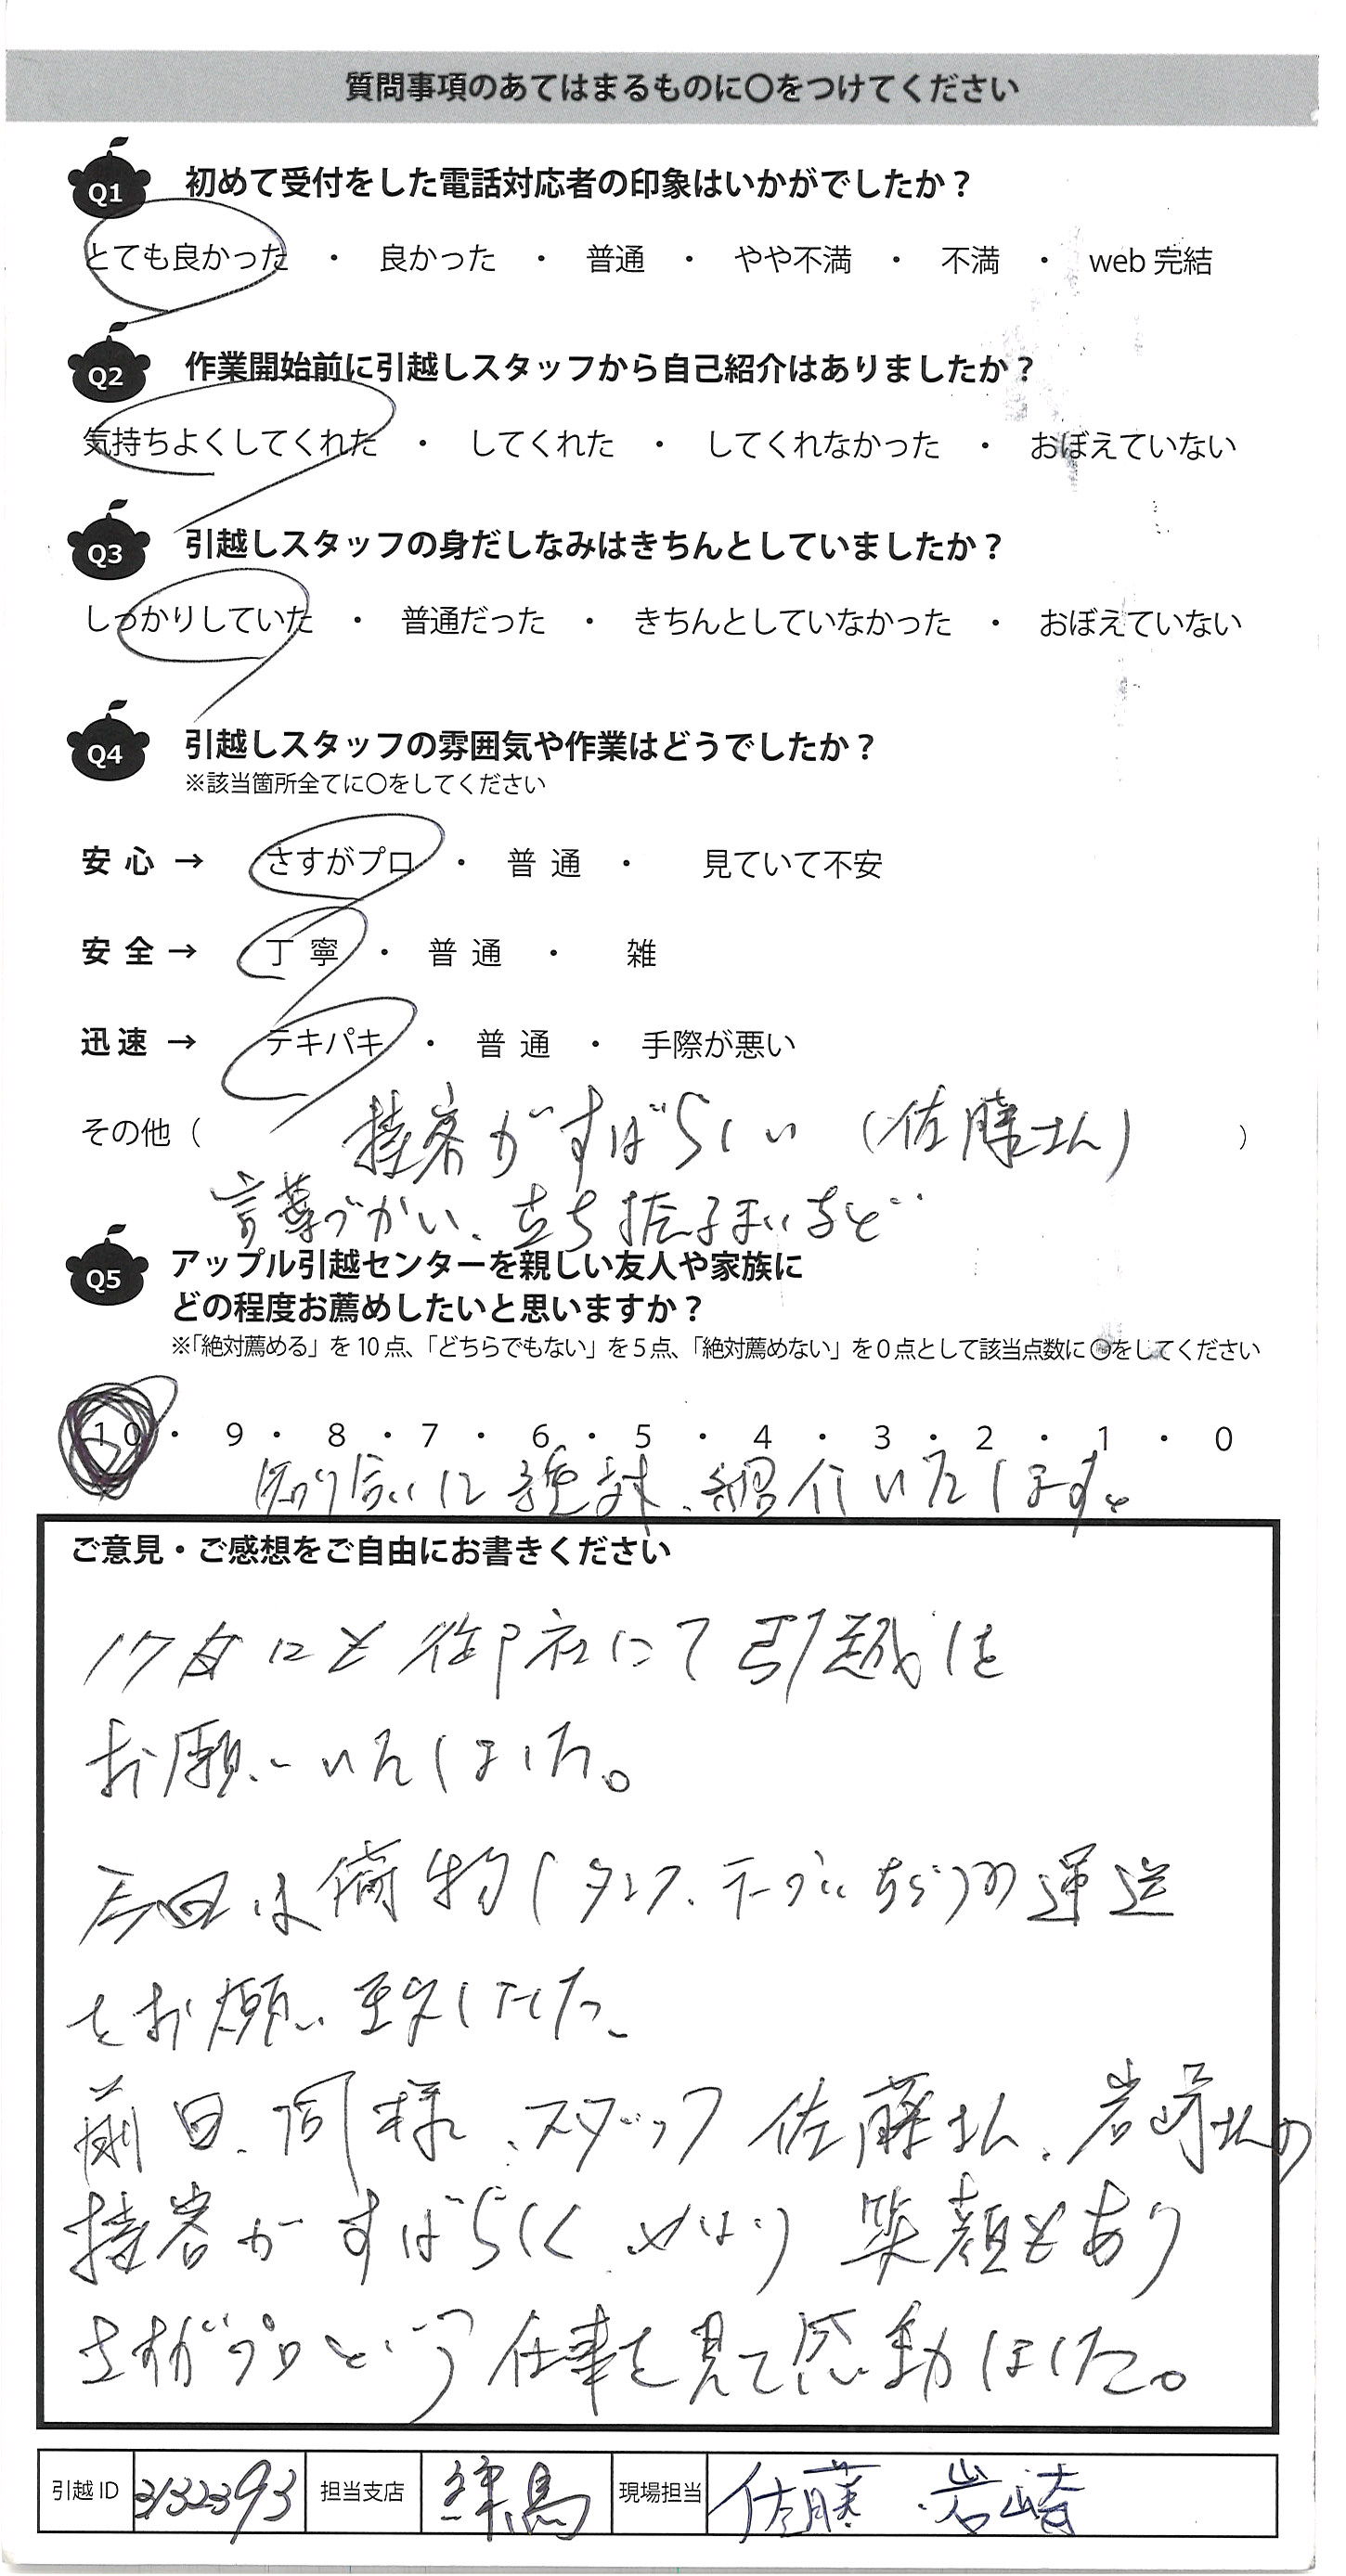 質問事項のあてはまるものに〇をつけてください
Q1 初めて受付をした電話対応者の印象はいかがでしたか？
とても良かった ・ 良かった ・ 普通 ・ やや不満 ・ 不満 ・ web 完結
Q2 作業開始前に引越しスタッフから自己紹介はありましたか？
気持ちよくしてくれた ・ してくれた ・ してくれなかった ・ おぼえていない
Q3 引越しスタッフの身だしなみはきちんとしていましたか？
しっかりしていた ・ 普通だった ・ きちんとしていなかった ・ おぼえていない
Q4 引越しスタッフの雰囲気や作業はどうでしたか？
※該当箇所全てに〇をしてください
安心 → さすがプロ ・ 普通 ・ 見ていて不安
安全 → 丁寧 ・ 普通 ・ 雑
迅速 → テキパキ ・ 普通 ・ 手際が悪い
その他（ 接客がすばらしい（佐藤さん） ）
言葉づかい、立ち振るまいなど
Q5 アップル引越センターを親しい友人や家族に
どの程度お薦めしたいと思いますか？
※「絶対薦める」を10点、「どちらでもない」を5点、「絶対薦めない」を0点として該当点数に〇をしてください
10 ・ 9 ・ 8 ・ 7 ・ 6 ・ 5 ・ 4 ・ 3 ・ 2 ・ 1 ・ 0
知り合いに絶対、紹介いたします。
ご意見・ご感想をご自由にお書きください
御社にて引越しを
お願いいたしました。
今回は荷物（タンス、テーブルなど）の運送
をお願い致しました。
前回、同様、スタッフ 佐藤さん、岩崎さんの
接客がすばらしく、やはり 笑顔もあり
さすがプロという仕事を見て感動しました。
引越ID 3132393 担当支店 練馬 現場担当 佐藤 岩崎